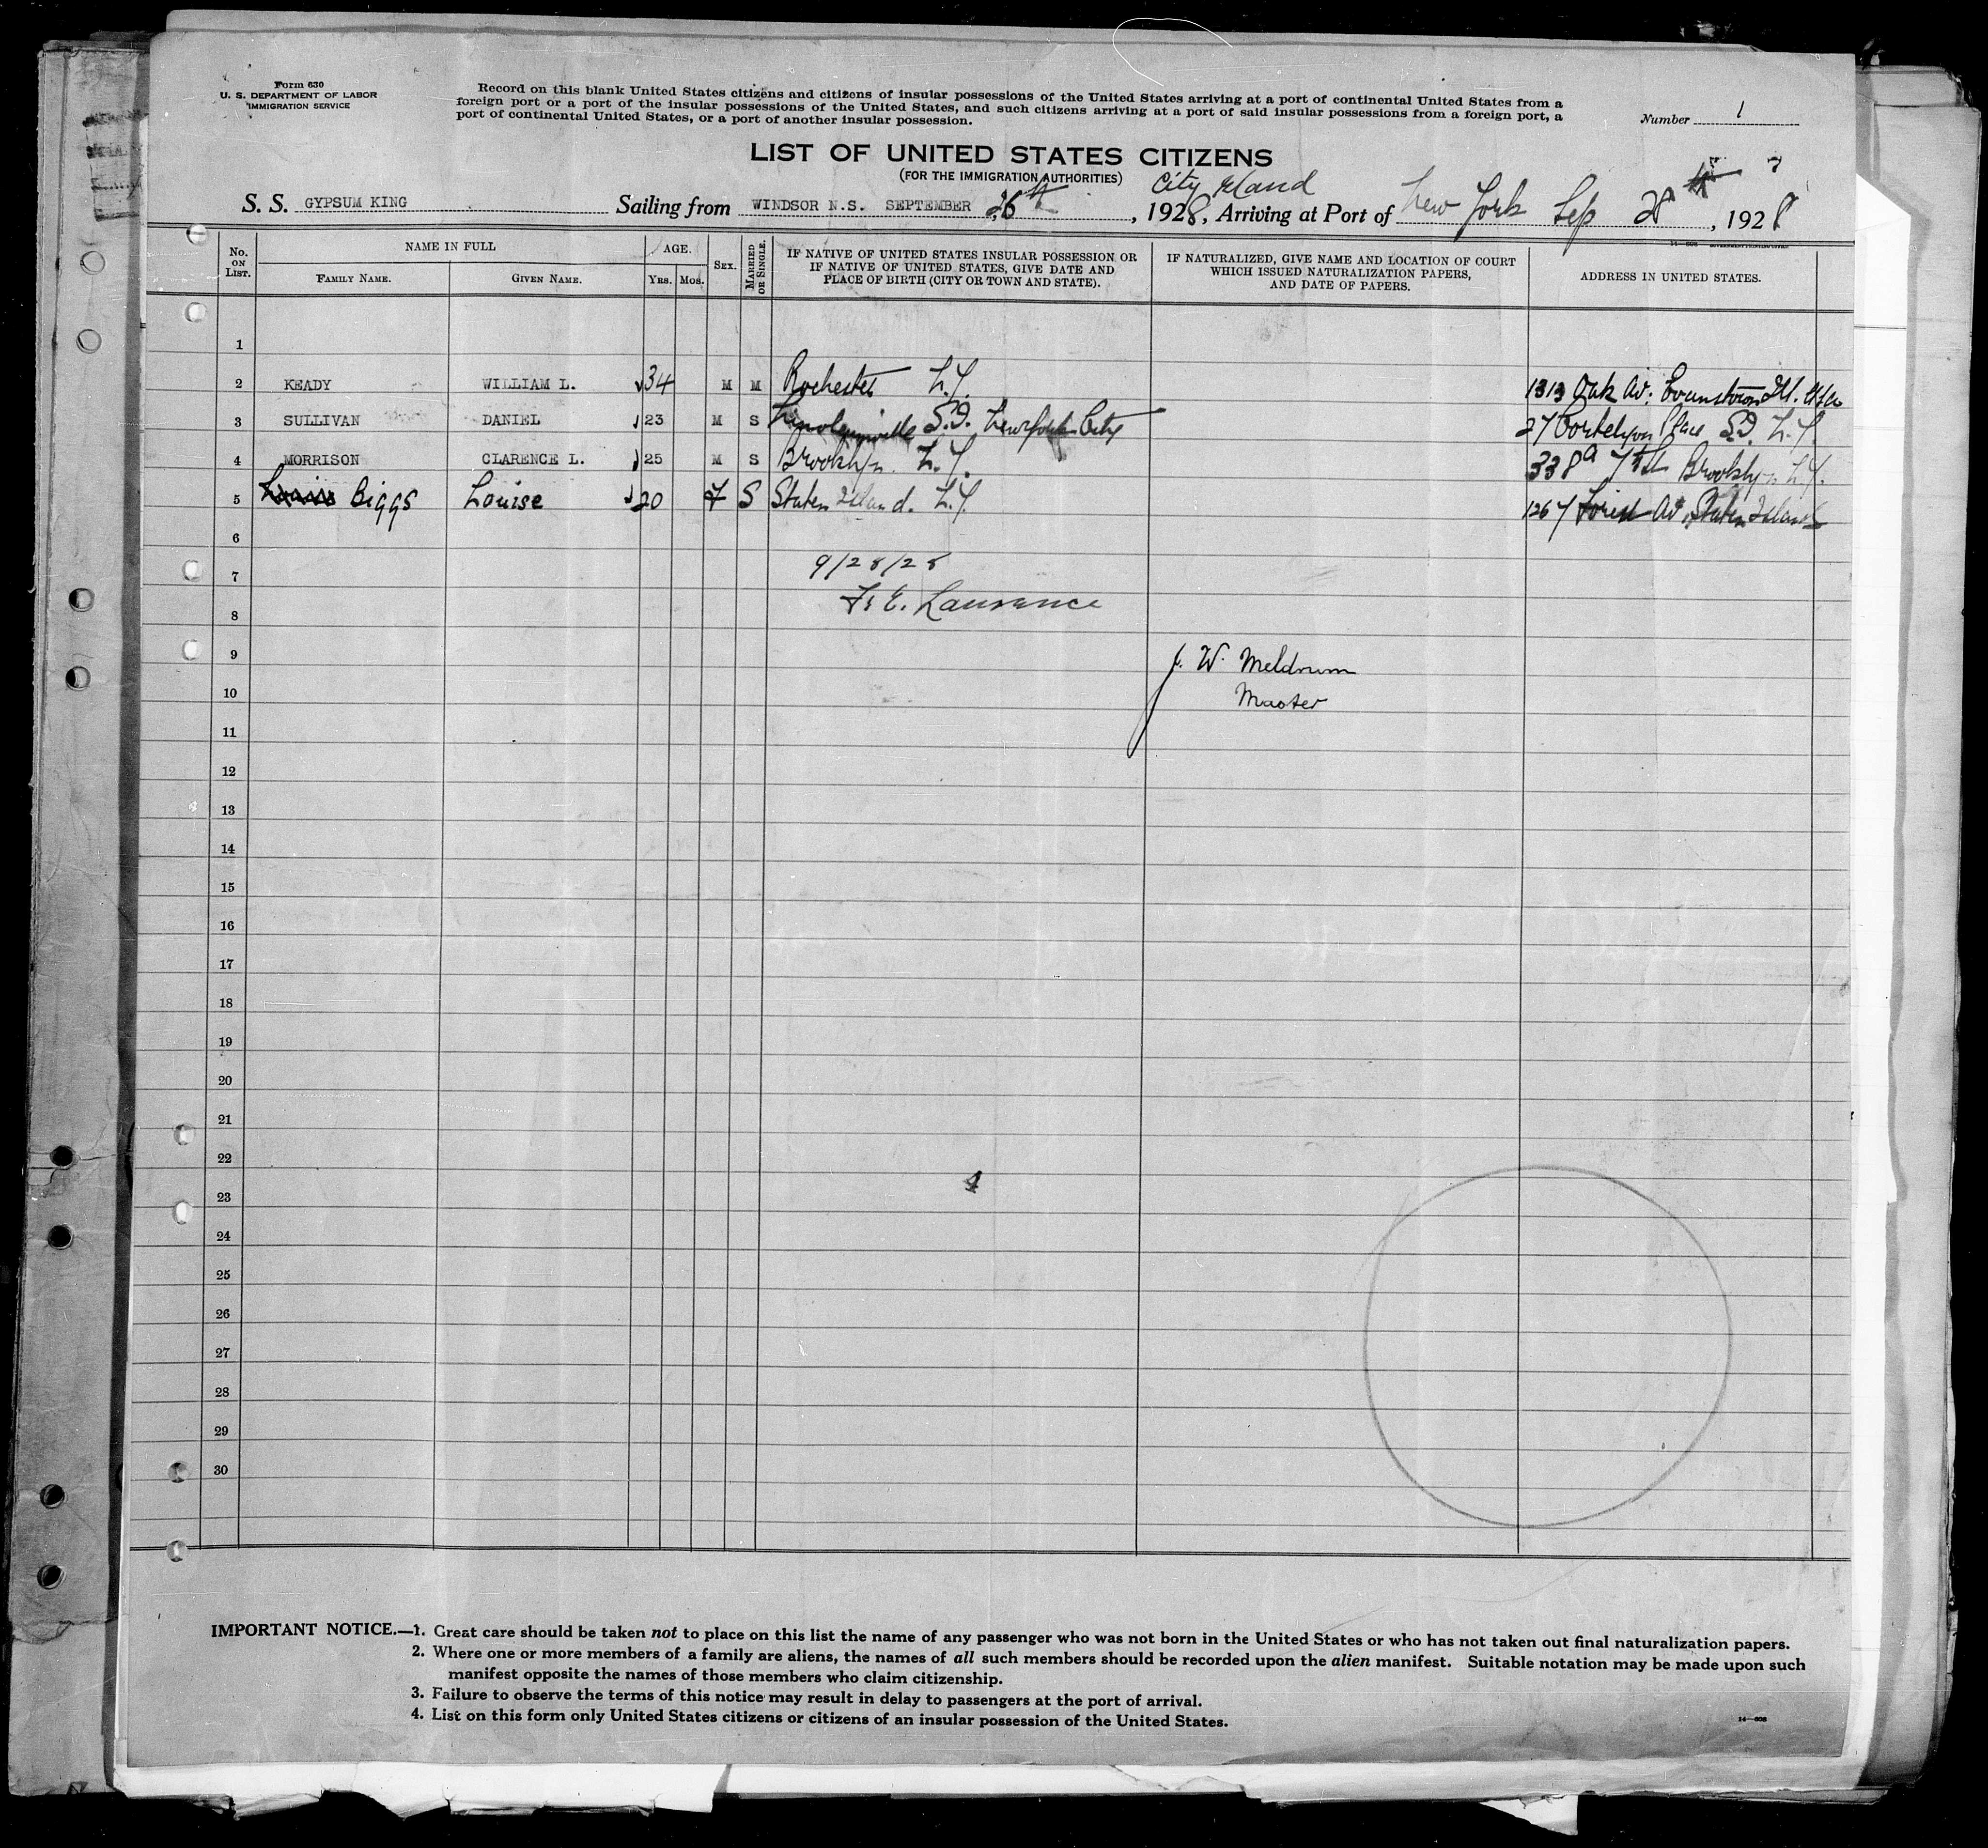 Form 630
U. S. DEPARTMENT OF LABOR
IMMIGRATION SERVICE
Record on this blank United States citizens and citizens of insular possessions of the United States arriving at a port of continental United States from a
foreign port or a port of the insular possessions of the United States, and such citizens arriving at a port of said insular possessions from a foreign port, a
port of continental United States, or a port of another insular possession.
Number 1
LIST OF UNITED STATES CITIZENS
(FOR THE IMMIGRATION AUTHORITIES)
City Island
S. S. GYPSUM KING Sailing from WINDSOR N.S. SEPTEMBER 26th, 1928, Arriving at Port of New York Sep 28, 1928
No. ON LIST. NAME IN FULL AGE. SEX. MARRIED OR SINGLE. IF NATIVE OF UNITED STATES INSULAR POSSESSION OR IF NATIVE OF UNITED STATES, GIVE DATE AND PLACE OF BIRTH (CITY OR TOWN AND STATE). IF NATURALIZED, GIVE NAME AND LOCATION OF COURT WHICH ISSUED NATURALIZATION PAPERS, AND DATE OF PAPERS. ADDRESS IN UNITED STATES.
FAMILY NAME. GIVEN NAME. YRS. MOS.
1
2 KEADY WILLIAM L. 34 M M Rochester N.Y. 1313 Oak Av. Evanston Ill.
3 SULLIVAN DANIEL 23 M S S.I. New York City 27 Cortelyou Place S.I. N.Y.
4 MORRISON CLARENCE L. 25 M S Brooklyn. N.Y. 338a 7th St Brooklyn N.Y.
5 Biggs Louise 20 F S Staten Island. N.Y. 1267 Forest Av. Staten Island
6
7 9/28/28
8 F. E. Laurence
9 J. W. Meldrum
10 Master
11
12
13
14
15
16
17
18
19
20
21
22
23 4
24
25
26
27
28
29
30
IMPORTANT NOTICE.—1. Great care should be taken not to place on this list the name of any passenger who was not born in the United States or who has not taken out final naturalization papers.
2. Where one or more members of a family are aliens, the names of all such members should be recorded upon the alien manifest. Suitable notation may be made upon such
manifest opposite the names of those members who claim citizenship.
3. Failure to observe the terms of this notice may result in delay to passengers at the port of arrival.
4. List on this form only United States citizens or citizens of an insular possession of the United States.
14—608